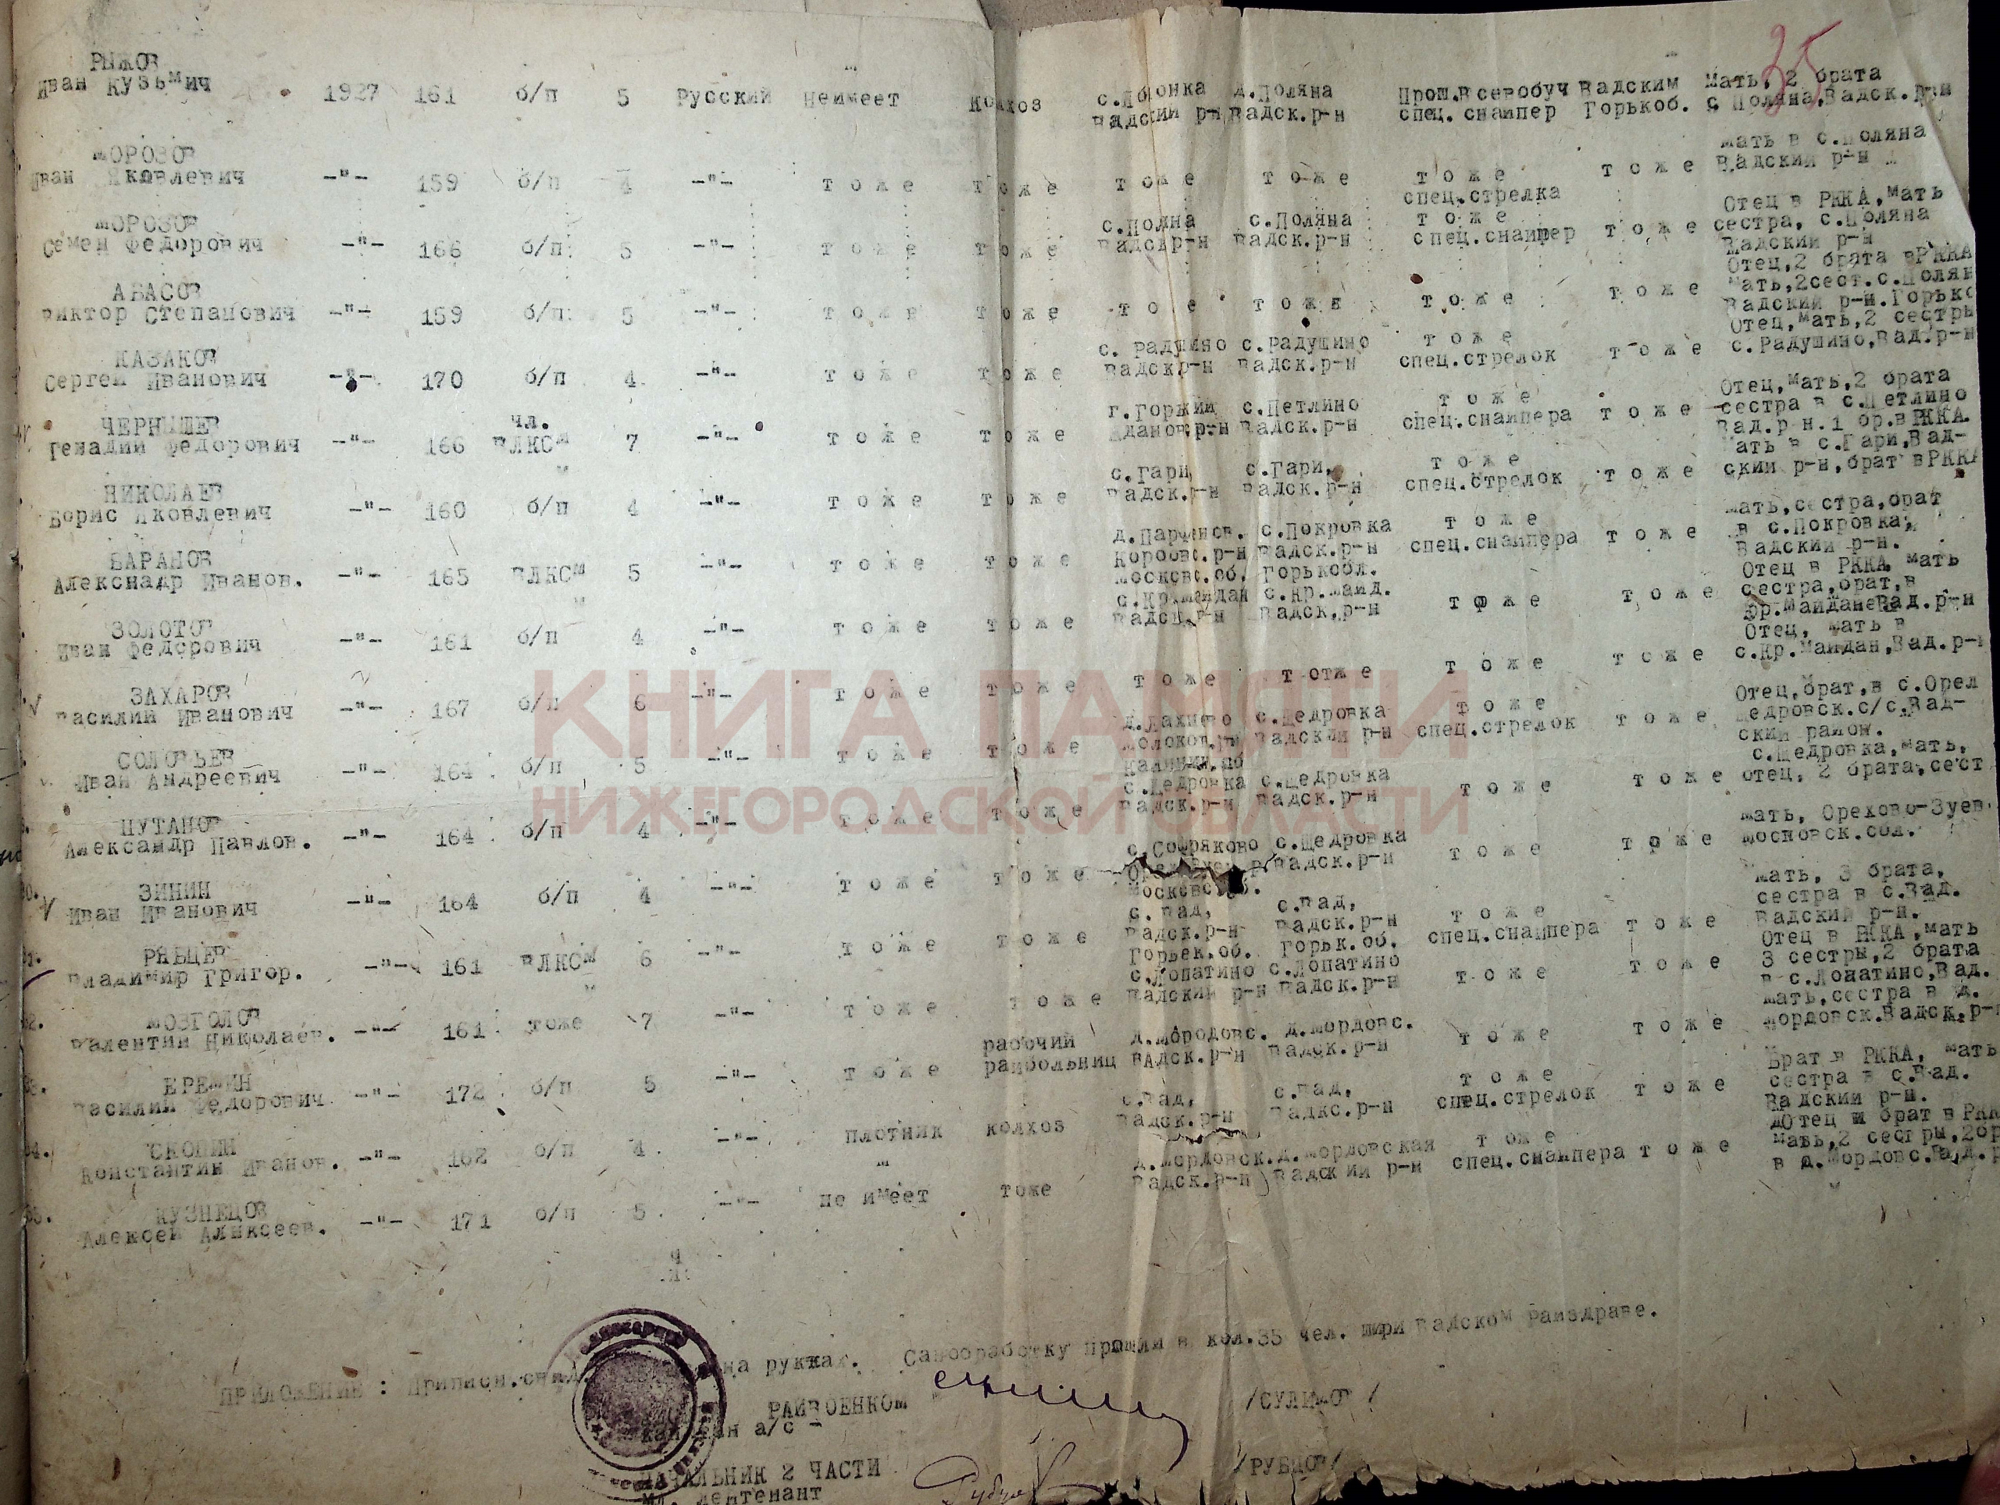 35
РЫЖОВ
Иван Кузьмич 1927 161 б/п 5 Русский Неимеет Колхоз с.Яблонка д.Поляна Прош.Всевобуч Вадским Мать, 2 брата
Вадский р-н Вадск.р-н спец. снайпер Горькоб. с Поляна,Вадск.р-н
МОРОЗОВ
Иван Яковлевич -"- 159 б/п 4 -"- тоже тоже тоже тоже тоже тоже Мать в с.Поляна
спец.стрелка Вадский р-н
МОРОЗОВ
Семен Федорович -"- 166 б/п 5 -"- тоже тоже с.Поляна с.Поляна тоже тоже Отец в РККА,мать
Вадскр-н Вадск.р-н спец.снайпер сестра, с.Поляна
Вадский р-н
АБАСОВ
Виктор Степанович -"- 159 б/п 5 -"- тоже тоже тое тоже тоже тоже Отец,2 брата вРККА
мать,2сест.с.Полян
Вадский р-н.Горько
КАЗАКОВ
Сергей Иванович -"- 170 б/п 4 -"- тоже тоже с. Радушино с.Радушино тоже тоже Отец,мать,2 сестры
Вадскр-н Вадск.р-н спец.стрелок с.Радушино,Вад.р-н
ЧЕРНЫШЕВ чл.
Генадий Федорович -"- 166 ВЛКСМ 7 -"- тоже тоже г.Горький с.Петлино тоже тоже Отец,мать,2 брата
Ждановр-н Вадск.р-н спец.снайпера сестра в с.Петлино
Вад.р н.1 бр.вРККА.
НИКОЛАЕВ
Борис Яковлевич -"- 160 б/п 4 -"- тоже тоже с.Гари, с.Гари, тоже тоже Мать в с.Гари,Вад-
Вадск.р-н Вадск.р-н спец.стрелок ский р-н,брат вРККА
БАРАНОВ
Алекснадр Иванов. -"- 165 ВЛКСМ 5 -"- тоже тоже д.Парфенов. с.Покровка тоже тоже Мать,сестра,брат
Коробов.р-н Вадск.р-н спец.снайпера в с.Покровка,
Московс.об. Горькобл. Вадский р-н.
ЗОЛОТОВ
Иван Федорович -"- 161 б/п 4 -"- тоже тоже с.Крмайдан с.Кр.Майд. тоже тоже Отец в РККА мать
Вадск.р-н Вадск.р-н сестра,брат,в
Кр.МайданеВад.р-н
ЗАХАРОВ
Василий Иванович -"- 167 б/п 6 -"- тоже тоже тоже тотже тоже тоже Отец, мать в
с.Кр.Майдан,Вад.р-н
СОЛОВЬЕВ
Иван Андреевич -"- 164 б/п 5 -"- тоже тоже с.Щедровка тоже тоже Отец,брат,в с.Орел
Вадский р-н спец.стрелок Щедровск.с/с.Вад-
ский район.
ПУТАНОВ
Александр Павлов. -"- 164 б/п 4 -"- тоже тоже с.Щедровка с.Щедровка тоже тоже с.Щедровка,мать,
Вадск.р-н Вадск.р-н отец, 2 брата,сест
ЗИНИН
Иван Иванович -"- 164 б/п 4 -"- тоже тоже с.Щедровка тоже тоже мать, Орехово-Зуев
Вадск.р-н Московск.обл.
РЯБЦЕВ
Владимир Григор. -"- 161 ВЛКСМ 6 -"- тоже тоже с.Вад, с.Вад, тоже тоже Мать, 3 брата,
Вадск.р-н Вадск.р-н спец.снайпера сестра в с.Вад.
Горьк.об. Горьк.об. Вадский р-н.
32. МОЗГОЛОВ
Валентин Николаев. -"- 161 тоже 7 -"- тоже тоже с.Лопатино с.Лопатино тоже тоже Отец в РККА,мать
Вадский р-н Вадск.р-н 3 сестры,2 брата
в с.Лопатино,Вад.
33. ЕРЕМИН
Василий Федорович -"- 172 б/п 5 -"- тоже рабочий д.Мородовс. д.Мордовс. тоже тоже Мать,сестра в д.
райбольниц ВАдск.р-н Вадск.р-н Мордовск.Вадск.р-н
34. СКОПИН
Константин Иванов. -"- 162 б/п 4 -"- плотник колхоз с.Вад, с.Вад, тоже тоже Брат в РККА, мать
Вадск.р-н Вадкс.р-н спец.стрелок сестра в с.Вад.
Вадский р-н.
35. КУЗНЕЦОВ
Алексей Алнксеев. -"- 171 б/п 5 -"- не имеет тоже д.Мордовск.д.Мордовская тоже тоже Отец и брат в РКК
Вадск.р-н Вадский р-н спец.снайпера мать,2 сестры,2бр
в д.Мордовс.Вад.р
КНИГА ПАМЯТИ
НИЖЕГОРОДСКОЙ ОБЛАСТИ
ПРИЛОЖЕНИЕ : Приписн.свид. на руках. Санобработку прошли в кол.35 чел. при Вадском Райздраве.
РАЙВОЕНКОМ
капитан а/с - /СУЛИМОВ/
НАЧАЛЬНИК 2 ЧАСТИ
Мл. лейтенант /РУБЦОВ/